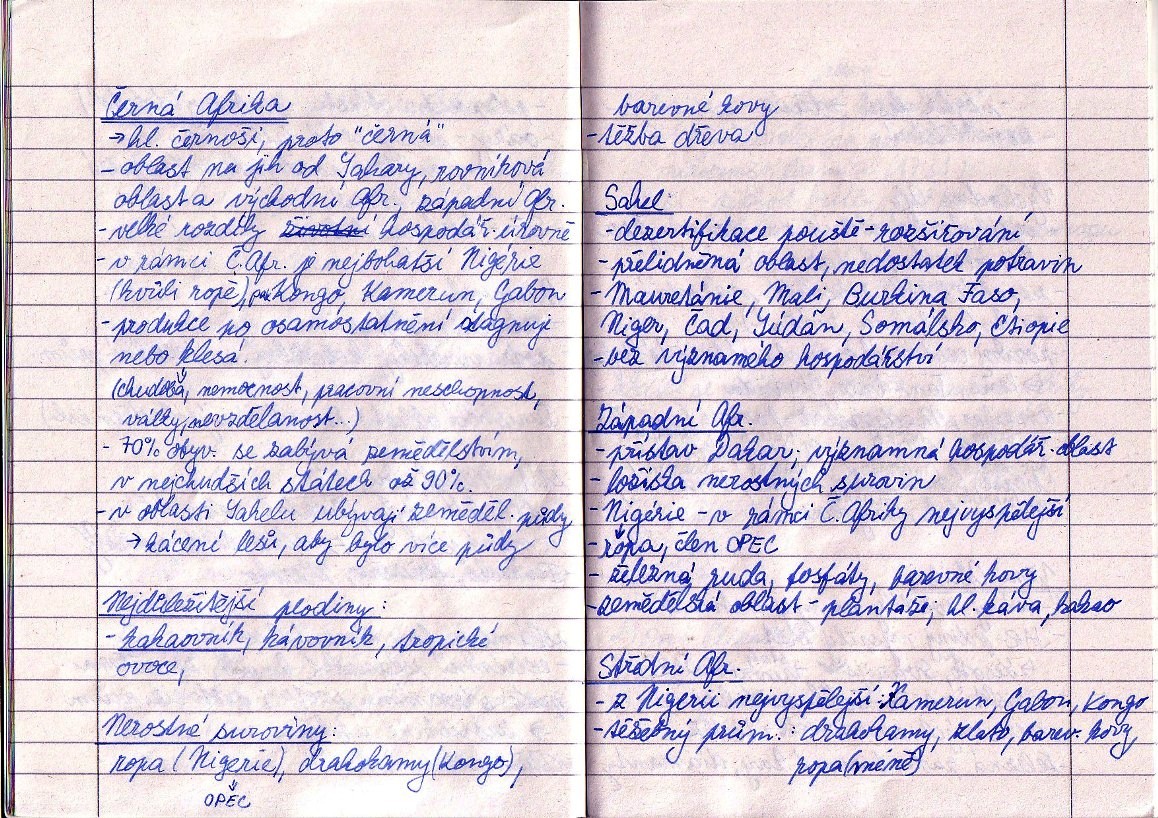 Černá Afrika
→ hl. černoši, proto "černá"
- oblast na jih od Sahary, rovníková
oblast a východní Afr., západní Afr.
- velké rozdíly životní hospodář. úrovně
- v rámci Č. Afr. je nejbohatší Nigérie
(kvůli ropě), pak Kongo, Kamerun, Gabon
- produkce po osamostatnění stagnuje
nebo klesá.
(chudoba, nemocnost, pracovní neschopnost,
války, nevzdělanost...)
- 70% obyv. se zabývá zemědělstvím,
v nejchudších státech až 90%.
- v oblasti Sahelu ubývají zeměděl. půdy
→ kácení lesů, aby bylo více půdy
Nejdůležitější plodiny:
- kakaovník, kávovník, tropické
ovoce,
Nerostné suroviny:
ropa (Nigérie), drahokamy (Kongo),
OPEC
barevné kovy
- těžba dřeva
Sahel:
- dezertifikace pouště - rozšiřování
- přelidněná oblast, nedostatek potravin
- Mauretánie, Mali, Burkina Faso,
Niger, Čad, Súdán, Somálsko, Etiopie
- bez významého hospodářství
Západní Afr.
- přístav Dakar, významná hospodář. oblast
- ložiska nerostných surovin
- Nigérie - v rámci Č. Afriky nejvyspělejší
- ropa, člen OPEC
- železná ruda, fosfáty, barevné kovy
- zemědělská oblast - plantáže, hl. káva, kakao
Střední Afr.
- z Nigerií nejvyspělejší: Kamerun, Gabon, Kongo
- těžební prům.: drahokamy, zlato, barev. kovy
ropa (méně)